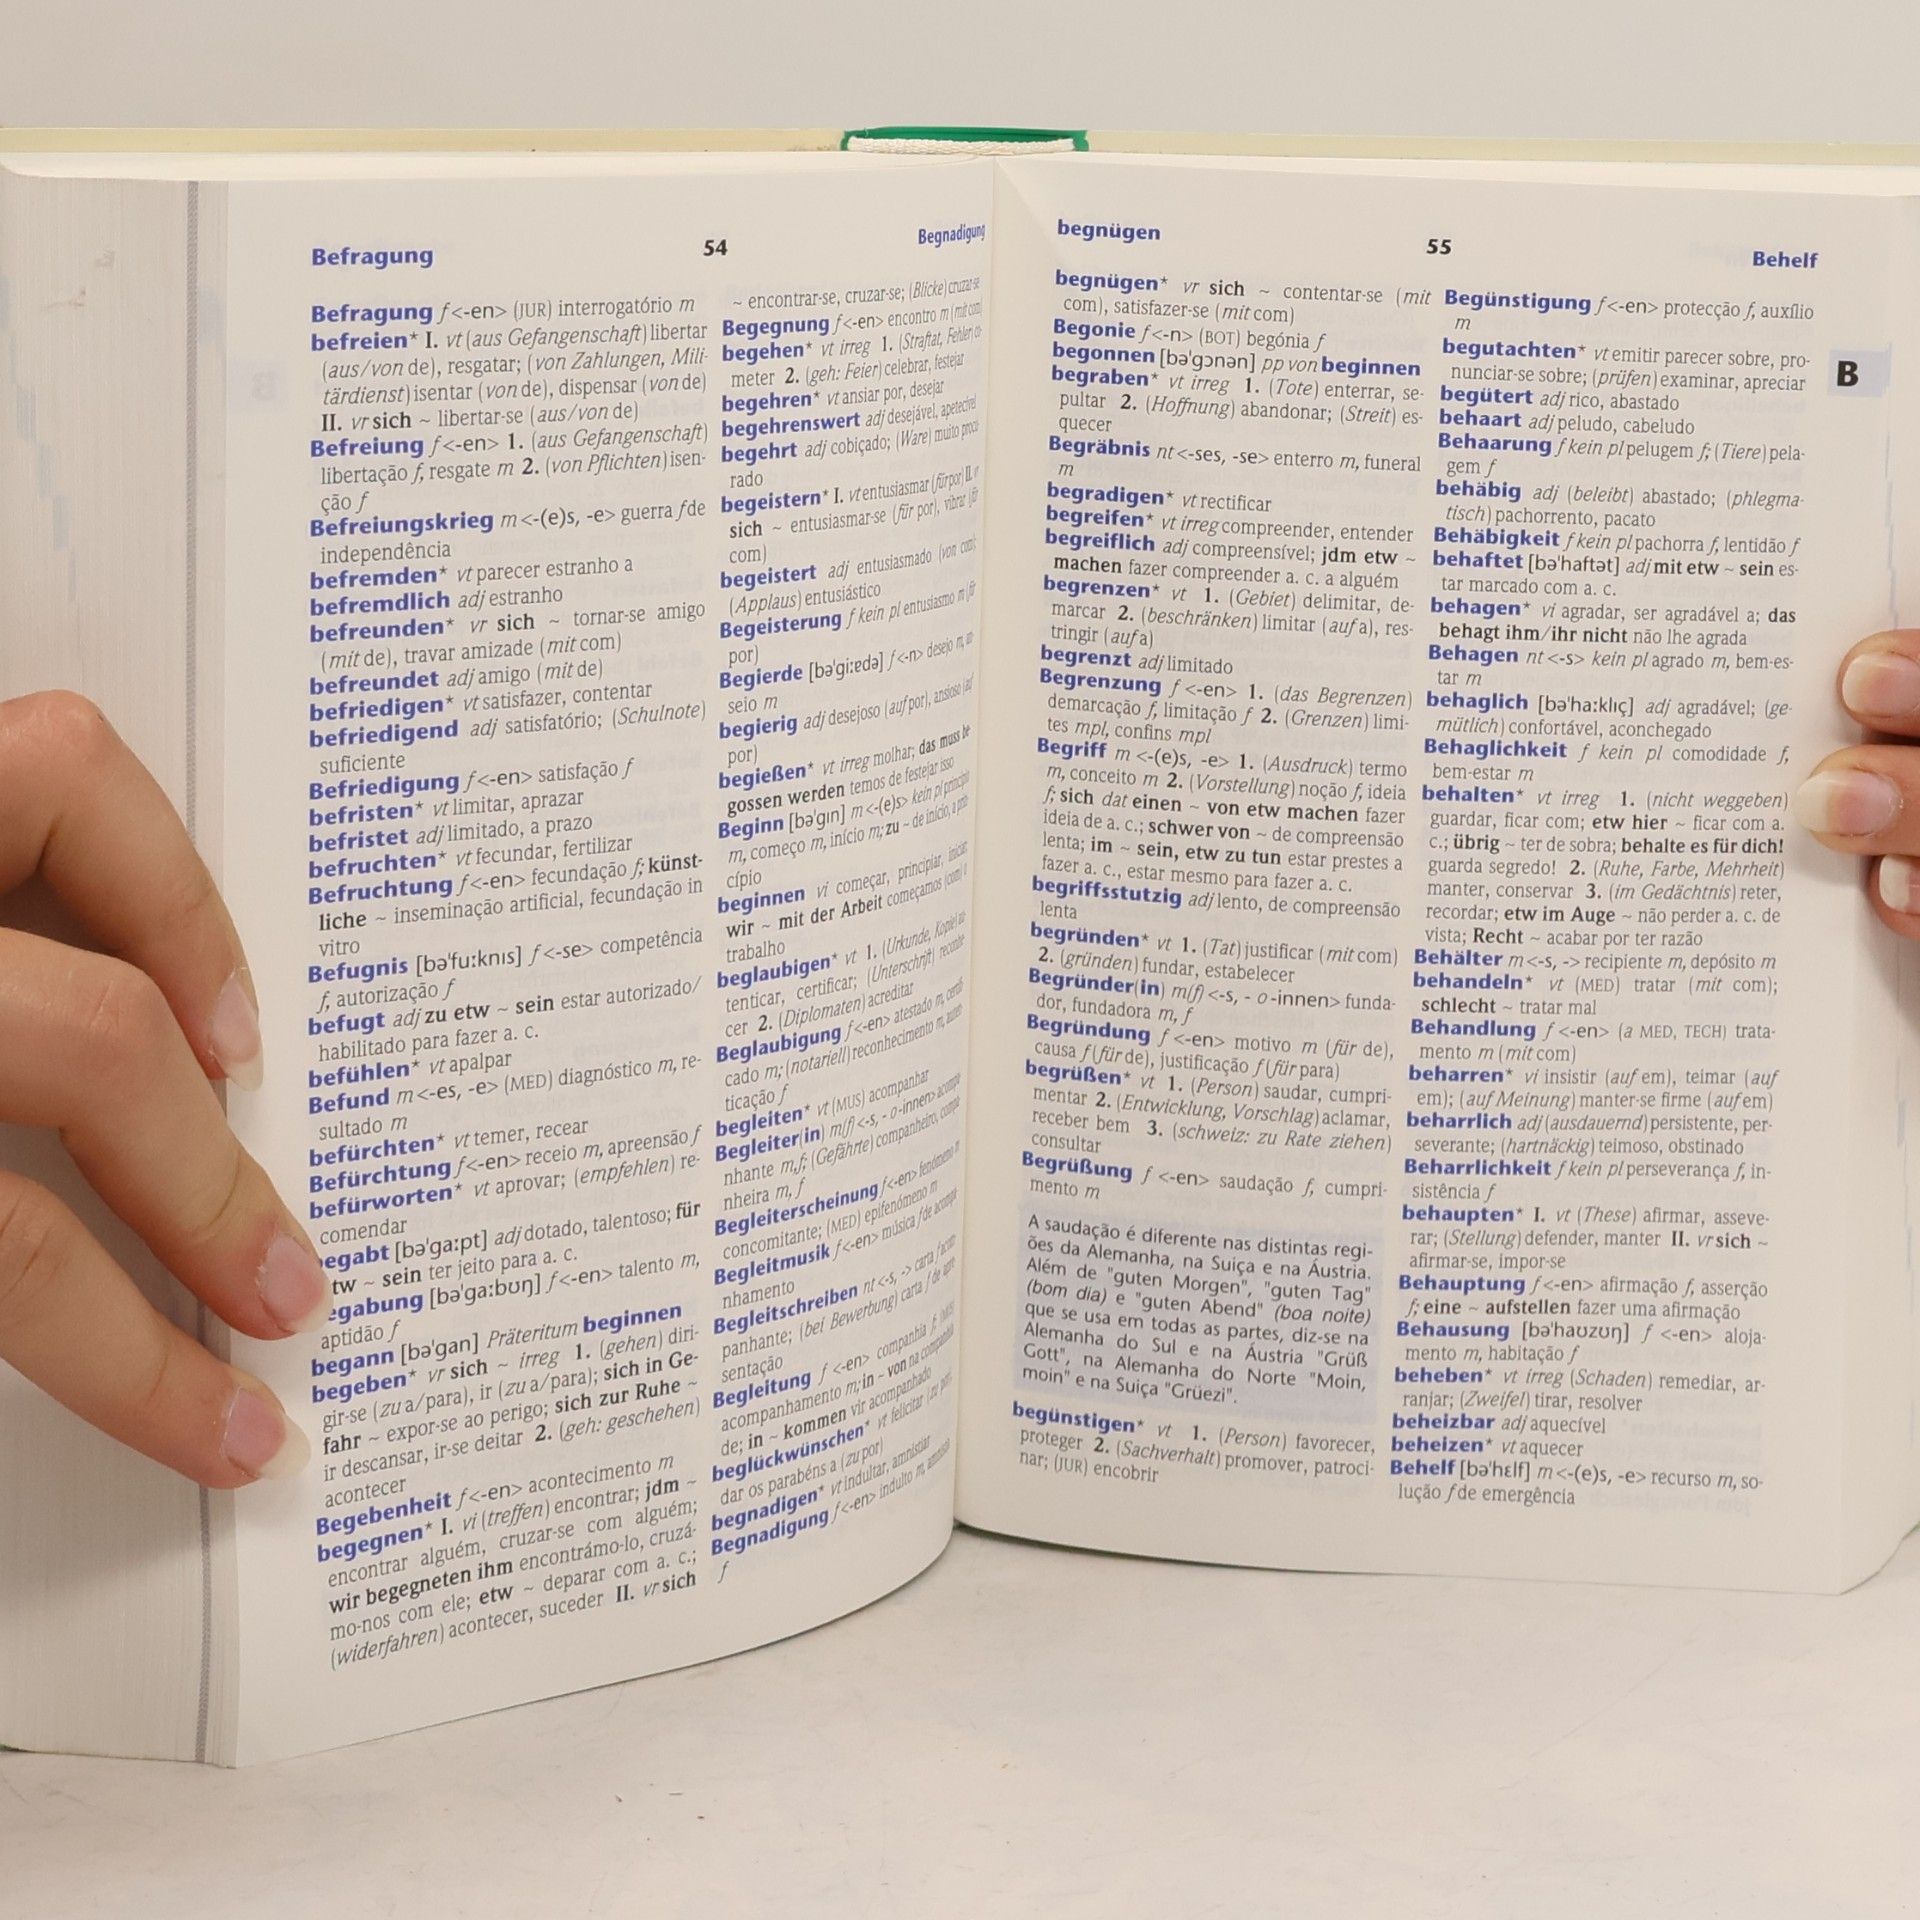 Befragung
54
Begnadigung
Befragung f <-en> (JUR) interrogatório m
befreien* I. vt (aus Gefangenschaft) libertar
(aus/von de), resgatar; (von Zahlungen, Mili-
tärdienst) isentar (von de), dispensar (von de)
II. vr sich ~ libertar-se (aus/von de)
Befreiung f <-en> 1. (aus Gefangenschaft)
libertação f, resgate m 2. (von Pflichten) isen-
ção f
Befreiungskrieg m <-(e)s, -e> guerra f de
independência
befremden* vt parecer estranho a
befremdlich adj estranho
befreunden* vr sich ~ tornar-se amigo
(mit de), travar amizade (mit com)
befreundet adj amigo (mit de)
befriedigen* vt satisfazer, contentar
befriedigend adj satisfatório; (Schulnote)
suficiente
Befriedigung f <-en> satisfação f
befristen* vt limitar, aprazar
befristet adj limitado, a prazo
befruchten* vt fecundar, fertilizar
Befruchtung f <-en> fecundação f; künst-
liche ~ inseminação artificial, fecundação in
vitro
Befugnis [bə'fu:knɪs] f <-se> competência
f, autorização f
befugt adj zu etw ~ sein estar autorizado/
habilitado para fazer a. c.
befühlen* vt apalpar
Befund m <-es, -e> (MED) diagnóstico m, re-
sultado m
befürchten* vt temer, recear
Befürchtung f <-en> receio m, apreensão f
befürworten* vt aprovar; (empfehlen) re-
comendar
egabt [bə'ga:pt] adj dotado, talentoso; für
tw ~ sein ter jeito para a. c.
egabung [bə'ga:bʊŋ] f <-en> talento m,
aptidão f
begann [bə'gan] Präteritum beginnen
begeben* vr sich ~ irreg 1. (gehen) diri-
gir-se (zu a/para), ir (zu a/para); sich in Ge-
fahr ~ expor-se ao perigo; sich zur Ruhe ~
ir descansar, ir-se deitar 2. (geh: geschehen)
acontecer
Begebenheit f <-en> acontecimento m
begegnen* I. vi (treffen) encontrar; jdm ~
encontrar alguém, cruzar-se com alguém;
wir begegneten ihm encontrámo-lo, cruzá-
mo-nos com ele; etw ~ deparar com a. c.;
(widerfahren) acontecer, suceder II. vr sich
~ encontrar-se, cruzar-se; (Blicke) cruzar-se
Begegnung f <-en> encontro m (mit com)
begehen* vt irreg 1. (Straftat, Fehler) co-
meter 2. (geh: Feier) celebrar, festejar
begehren* vt ansiar por, desejar
begehrenswert adj desejável, apetecível
begehrt adj cobiçado; (Ware) muito procu-
rado
begeistern* I. vt entusiasmar (für por) II. vr
sich ~ entusiasmar-se (für por), vibrar (für
com)
begeistert adj entusiasmado (von com);
(Applaus) entusiástico
Begeisterung f kein pl entusiasmo m (für
por)
Begierde [bə'gi:ɐdə] f <-n> desejo m, an-
seio m
begierig adj desejoso (auf por), ansioso (auf
por)
begießen* vt irreg molhar; das muss be-
gossen werden temos de festejar isso
Beginn [bə'gɪn] m <-(e)s> kein pl princípio
m, começo m, início m; zu ~ de início, a prin-
cípio
beginnen vi começar, principiar, iniciar;
wir ~ mit der Arbeit começamos (com) o
trabalho
beglaubigen* vt 1. (Urkunde, Kopie) au-
tenticar, certificar; (Unterschrift) reconhe-
cer 2. (Diplomaten) acreditar
Beglaubigung f <-en> atestado m, certifi-
cado m; (notariell) reconhecimento m, auten-
ticação f
begleiten* vt (MUS) acompanhar
Begleiter(in) m(f) <-s, - o -innen> acompa-
nhante m,f; (Gefährte) companheiro, compa-
nheira m, f
Begleiterscheinung f <-en> fenómeno m
concomitante; (MED) epifenómeno m
Begleitmusik f <-en> música f de acompa-
nhamento
Begleitschreiben nt <-s, -> carta f acom-
panhante; (bei Bewerbung) carta f de apre-
sentação
Begleitung f <-en> companhia f; (MUS)
acompanhamento m; in ~ von na companhia
de; in ~ kommen vir acompanhado
beglückwünschen* vt felicitar (zu por),
dar os parabéns a (zu por)
begnadigen* vt indultar, amnistiar
Begnadigung f <-en> indulto m, amnistia
f
begnügen
55
Behelf
begnügen* vr sich ~ contentar-se (mit
com), satisfazer-se (mit com)
Begonie f <-n> (BOT) begónia f
begonnen [bə'gɔnən] pp von beginnen
begraben* vt irreg 1. (Tote) enterrar, se-
pultar 2. (Hoffnung) abandonar; (Streit) es-
quecer
Begräbnis nt <-ses, -se> enterro m, funeral
m
begradigen* vt rectificar
begreifen* vt irreg compreender, entender
begreiflich adj compreensível; jdm etw ~
machen fazer compreender a. c. a alguém
begrenzen* vt 1. (Gebiet) delimitar, de-
marcar 2. (beschränken) limitar (auf a), res-
tringir (auf a)
begrenzt adj limitado
Begrenzung f <-en> 1. (das Begrenzen)
demarcação f, limitação f 2. (Grenzen) limi-
tes mpl, confins mpl
Begriff m <-(e)s, -e> 1. (Ausdruck) termo
m, conceito m 2. (Vorstellung) noção f, ideia
f; sich dat einen ~ von etw machen fazer
ideia de a. c.; schwer von ~ de compreensão
lenta; im ~ sein, etw zu tun estar prestes a
fazer a. c., estar mesmo para fazer a. c.
begriffsstutzig adj lento, de compreensão
lenta
begründen* vt 1. (Tat) justificar (mit com)
2. (gründen) fundar, estabelecer
Begründer(in) m(f) <-s, - o -innen> funda-
dor, fundadora m, f
Begründung f <-en> motivo m (für de),
causa f (für de), justificação f (für para)
begrüßen* vt 1. (Person) saudar, cumpri-
mentar 2. (Entwicklung, Vorschlag) aclamar,
receber bem 3. (schweiz: zu Rate ziehen)
consultar
Begrüßung f <-en> saudação f, cumpri-
mento m
A saudação é diferente nas distintas regi-
ões da Alemanha, na Suiça e na Áustria.
Além de "guten Morgen", "guten Tag"
(bom dia) e "guten Abend" (boa noite)
que se usa em todas as partes, diz-se na
Alemanha do Sul e na Áustria "Grüß
Gott", na Alemanha do Norte "Moin,
moin" e na Suiça "Grüezi".
begünstigen* vt 1. (Person) favorecer,
proteger 2. (Sachverhalt) promover, patroci-
nar; (JUR) encobrir
Begünstigung f <-en> protecção f, auxílio
m
begutachten* vt emitir parecer sobre, pro-
nunciar-se sobre; (prüfen) examinar, apreciar
begütert adj rico, abastado
behaart adj peludo, cabeludo
Behaarung f kein pl pelugem f; (Tiere) pela-
gem f
behäbig adj (beleibt) abastado; (phlegma-
tisch) pachorrento, pacato
Behäbigkeit f kein pl pachorra f, lentidão f
behaftet [bə'haftət] adj mit etw ~ sein es-
tar marcado com a. c.
behagen* vi agradar, ser agradável a; das
behagt ihm/ihr nicht não lhe agrada
Behagen nt <-s> kein pl agrado m, bem-es-
tar m
behaglich [bə'ha:klɪç] adj agradável; (ge-
mütlich) confortável, aconchegado
Behaglichkeit f kein pl comodidade f,
bem-estar m
behalten* vt irreg 1. (nicht weggeben)
guardar, ficar com; etw hier ~ ficar com a.
c.; übrig ~ ter de sobra; behalte es für dich!
guarda segredo! 2. (Ruhe, Farbe, Mehrheit)
manter, conservar 3. (im Gedächtnis) reter,
recordar; etw im Auge ~ não perder a. c. de
vista; Recht ~ acabar por ter razão
Behälter m <-s, -> recipiente m, depósito m
behandeln* vt (MED) tratar (mit com);
schlecht ~ tratar mal
Behandlung f <-en> (a MED, TECH) trata-
mento m (mit com)
beharren* vi insistir (auf em), teimar (auf
em); (auf Meinung) manter-se firme (auf em)
beharrlich adj (ausdauernd) persistente, per-
severante; (hartnäckig) teimoso, obstinado
Beharrlichkeit f kein pl perseverança f, in-
sistência f
behaupten* I. vt (These) afirmar, asseve-
rar; (Stellung) defender, manter II. vr sich ~
afirmar-se, impor-se
Behauptung f <-en> afirmação f, asserção
f; eine ~ aufstellen fazer uma afirmação
Behausung [bə'haʊzʊŋ] f <-en> aloja-
mento m, habitação f
beheben* vt irreg (Schaden) remediar, ar-
ranjar; (Zweifel) tirar, resolver
beheizbar adj aquecível
beheizen* vt aquecer
Behelf [bə'hɛlf] m <-(e)s, -e> recurso m, so-
lução f de emergência
B